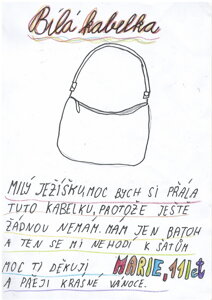 Bílá kabelka
MILÝ JEŽÍŠKU, MOC BYCH SI PŘÁLA
TUTO KABELKU, PROTOŽE JEŠTĚ
ŽÁDNOU NEMAM. MAM JEN BATOH
A TEN SE MI NEHODÍ K ŠATŮM
MOC TI DĚKUJI MARIE, 11 let
A PŘEJI KRASNÉ VÁNOCE.